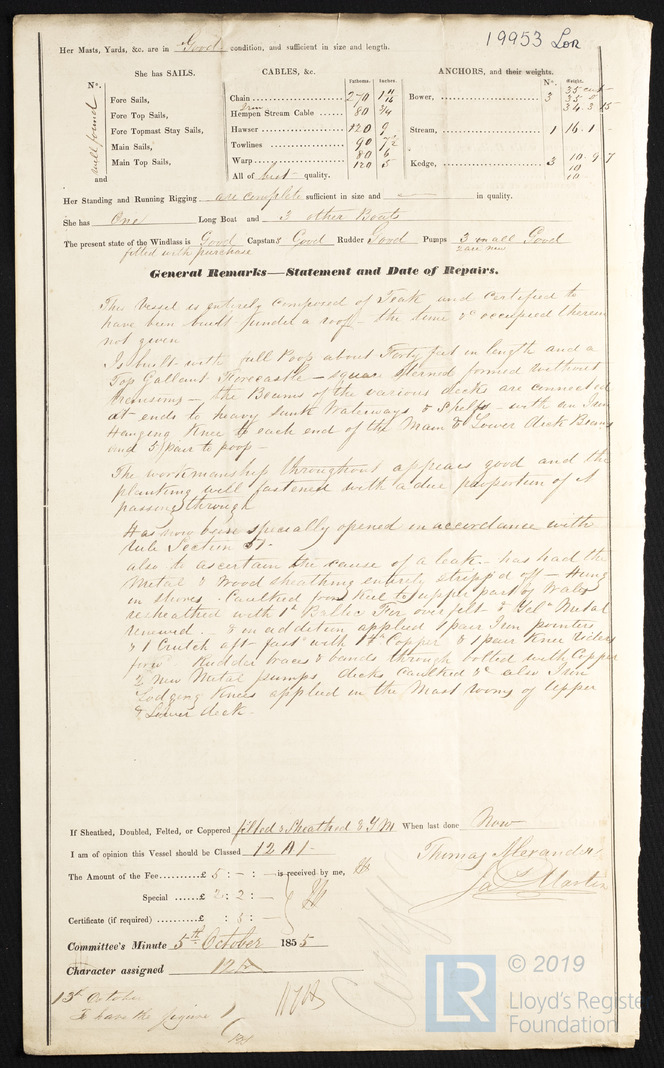 19953 Lon
Her Masts, Yards, &c. are in Good condition, and sufficient in size and length.
She has SAILS.
CABLES, &c.
ANCHORS, and their weights.
Nº.
Fathoms.
Inches.
Nº.
Weight.
well found
and
Fore Sails,
Fore Top Sails,
Fore Topmast Stay Sails,
Main Sails,
Main Top Sails,
Chain 270 1 11/16
Iron
Hempen Stream Cable 80 3/4
Hawser 120 9
Towlines 90 7 1/2
80 6
Warp 120 5
All of best quality.
Bower, 3 35 cwt
35
34.3.15
Stream, 1 16.1.-
Kedge, 3 10.9.7
10
10
Her Standing and Running Rigging are complete sufficient in size and in quality.
She has One Long Boat and 3 other Boats
The present state of the Windlass is Good Capstans Good Rudder Good Pumps 3 in all Good
fitted with purchase
2 are new
General Remarks—Statement and Date of Repairs.
This Vessel is entirely composed of Teak and certified to
have been built under a roof - the time &c occupied therein
not given
Is built with full Poop about Forty feet in length and a
Top Gallant Forecastle - square sterned formed without
transoms - the Beams of the various decks are connected
at ends to heavy sunk Waterways & Shelfs - with an Iron
Hanging Knee to each end of the Main & Lower deck Beams
and 5 pair to poop -
The workmanship throughout appears good and the
planking well fastened with a due proportion of it
passing through
Has now been specially opened in accordance with
rule Section 51 -
also to ascertain the cause of a leak - has had the
Metal & Wood sheathing entirely stripp'd off - Hung
in shores - Caulked from Keel to upper part of Wales
resheathed with 1ⁿ Baltic Fir over felt & Yelʷ Metal
renewed - & in addition applied 1 pair Iron pointers
& 1 Crutch aft fastᵈ with Copper & 1 pair Knee Riders
forwᵈ Rudder braces & bands through bolted with Copper
2 New Metal pumps, decks Caulked &c also Iron
Lodging Knees applied in the Mast rooms of Upper
& Lower deck -
If Sheathed, Doubled, Felted, or Coppered felted & Sheathed & YM When last done Now
I am of opinion this Vessel should be Classed 12 A1 -
The Amount of the Fee £ 5 : - : - is received by me,
Special £ 2 : 2 : -
Certificate (if required) £ : 5 : -
Thomas Alexander
Jas Martin
Committee's Minute 5th October 1855
Character assigned 12 A
13th October
I have the
© 2019
LR
Lloyd's Register
Foundation